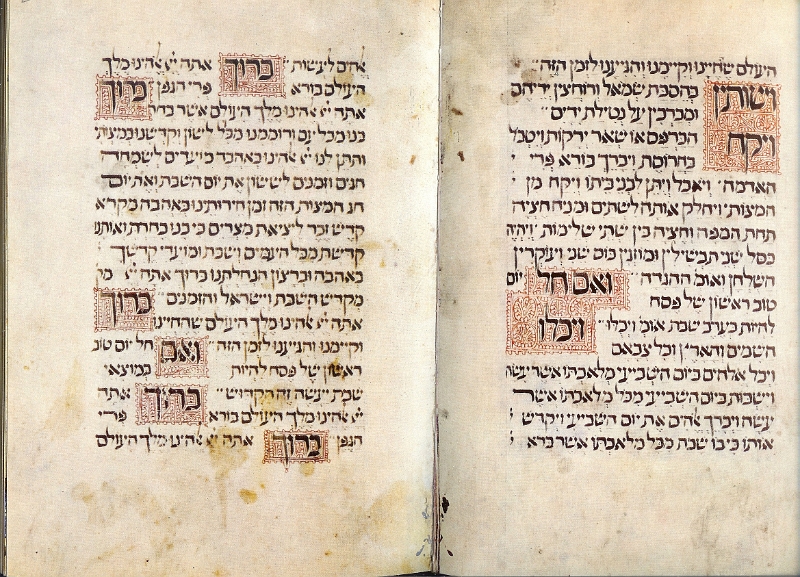 העולם שהחיינו וקיימנו והגיענו לזמן הזה׃
ושותין בהסבת שמאל ורוחצין ידיהם
ומברכין על נטילת ידים׃
ויקח הכרפס או שאר ירקות ויטבל
בחרוסת ויברך בורא פרי
האדמה׃ ויאכל ויתן לבני ביתו ויקח מן
המצות׳ ויחלק אותה לשתים ומניח חציה
תחת המפה וחציה בין שתי שלימות׳ ויהיה
בסל שני תבשילין ומוזגין כוס שני ועוקרין
השלחן ואומ׳ ההגדה׃ ואם חל יום
טוב ראשון של פסח
להיות בערב שבת אומ׳ ויכלו׃ ויכלו
השמים והארץ וכל צבאם
ויכל אלהים ביום השביעי מלאכתו אשר עשה
וישבות ביום השביעי מכל מלאכתו אשר
עשה ויברך אהים את יום השביעי ויקדש
אותו כי בו שבת מכל מלאכתו אשר ברא
אהים לעשות׃ ברוך אתה יי אהינו מלך
העולם בורא פרי הגפן׃ ברוך
אתה יי אהינו מלך העולם אשר בחר
בנו מכל עם ורוממנו מכל לשון וקדשנו במצותיו
ותתן לנו יי אהינו באהבה מועדים לשמחה
חגים וזמנים לששון את יום השבת ואת יום
חג המצות הזה זמן חירותינו באהבה מקרא
קדש זכר ליציאת מצרים כי בנו בחרת ואותנו
קדשת מכל העמים ושבת ומועדי קדשך
באהבה וברצון הנחלתנו ברוך אתה יי
מקדש השבת וישראל והזמנים׃ ברוך
אתה יי אהינו מלך העולם שהחיינו
וקיימנו והגיענו לזמן הזה׃ ואם חל יום טוב
ראשון של פסח להיות במוצאי
שבת יעשה זה הקדוש׃ ברוך אתה
יי אהינו מלך העולם בורא פרי
הגפן׃ ברוך אתה יי אהינו מלך העולם